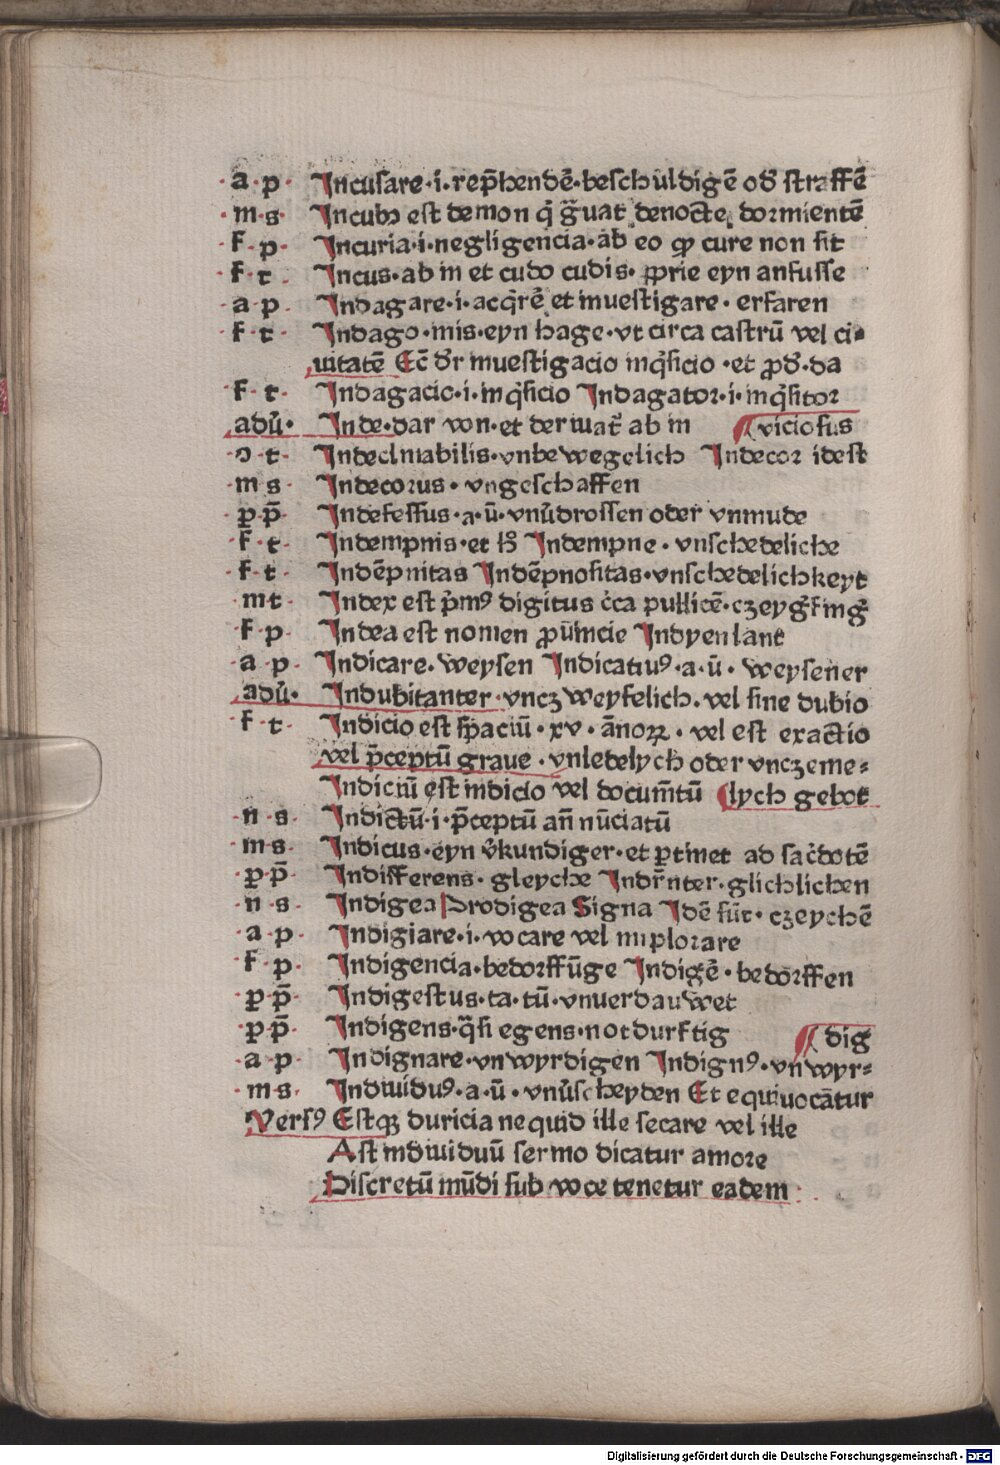 ·a·p· Incusare·i·rep̄hendē·beschuldigē od̄ straffē
·m·s· Incubꝰ est demon q̇ g̃uat denocte dormientē
·f·p· Incuria·i·negligencia·ab eo ꝙ cure non sit
·f·t· Incus·ab in et cudo cudis· ꝓprie eyn anfusse
·a·p· Indagare·i·acq̇rē et inuestigare· erfaren
·f·t· Indago·inis·eyn hage·vt circa castrū vel ci⸗
uitatē Ec̄ dr̄ inuestigacio inq̇sicio·et ꝓd̄·da
·f·t· Indagacio·i·inq̇sicio Indagator·i·inq̇sitor
adū· Inde·dar von·et deriuat᷑ ab in ¶viciosus
·o·t· Indeclinabilis·vnbewegelich Indecor idest
·m·s· Indecorus·vngeschaffen
·p·p̄· Indefessus·a·ū·vnūdrossen oder vnmude
·f·t· Indempnis·et hͦ Indempne·vnschedeliche
·f·t· Indēpnitas Indēpnositas·vnschedelichkeyt
·mt· Index est p̓mꝰ digitus c̓ca pullicē·czeyg᷑fing᷑
·f·p· Indea est nomen ꝓuīncie Indyenlant
·a·p· Indicare·weysen Indicatiuꝰ·a·ū·weysener
adū· Indubitanter·vncz weyfelich·vel sine dubio
·f·t· Indicio est spaciū·xv·ānoꝝ·vel est exactio
vel p̄ceptū graue·vnledelych oder vnczeme⸗
Indiciū est indicio vel docum̄tū ¶lych gebot
·n·s· Indictū·i·p̄ceptū an̄ nūciatū
·m·s· Indicus·eyn v̓kundiger·et ꝑtinet ad sac̓dotē
·p·p̄· Indifferens·gleyche Indr̄nter·glichlichen
·n·s· Indigea Prodigea Signa Idē sūt·czeychē
·a·p· Indigiare·i·vocare vel inplorare
·f·p· Indigencia·bedorffūge Indigē·bedorffen
·p·p̄· Indigestus·ta·tū·vnuerdauwet
·p·p̄· Indigens·q̄si egens·notdurftig ¶dig
·a·p· Indignare·vnwyrdigen Indignꝰ·vnwyr⸗
·m·s· Indiuiduꝰ·a·ū·vnūscheyden Et equiuocātur
Versꝰ Estqꝫ duricia nequid ille secare vel ille
Ast indiuiduū sermo dicatur amore
Discretū mūdi sub voce tenetur eadem
Digitalisierung gefördert durch die Deutsche Forschungsgemeinschaft · DFG